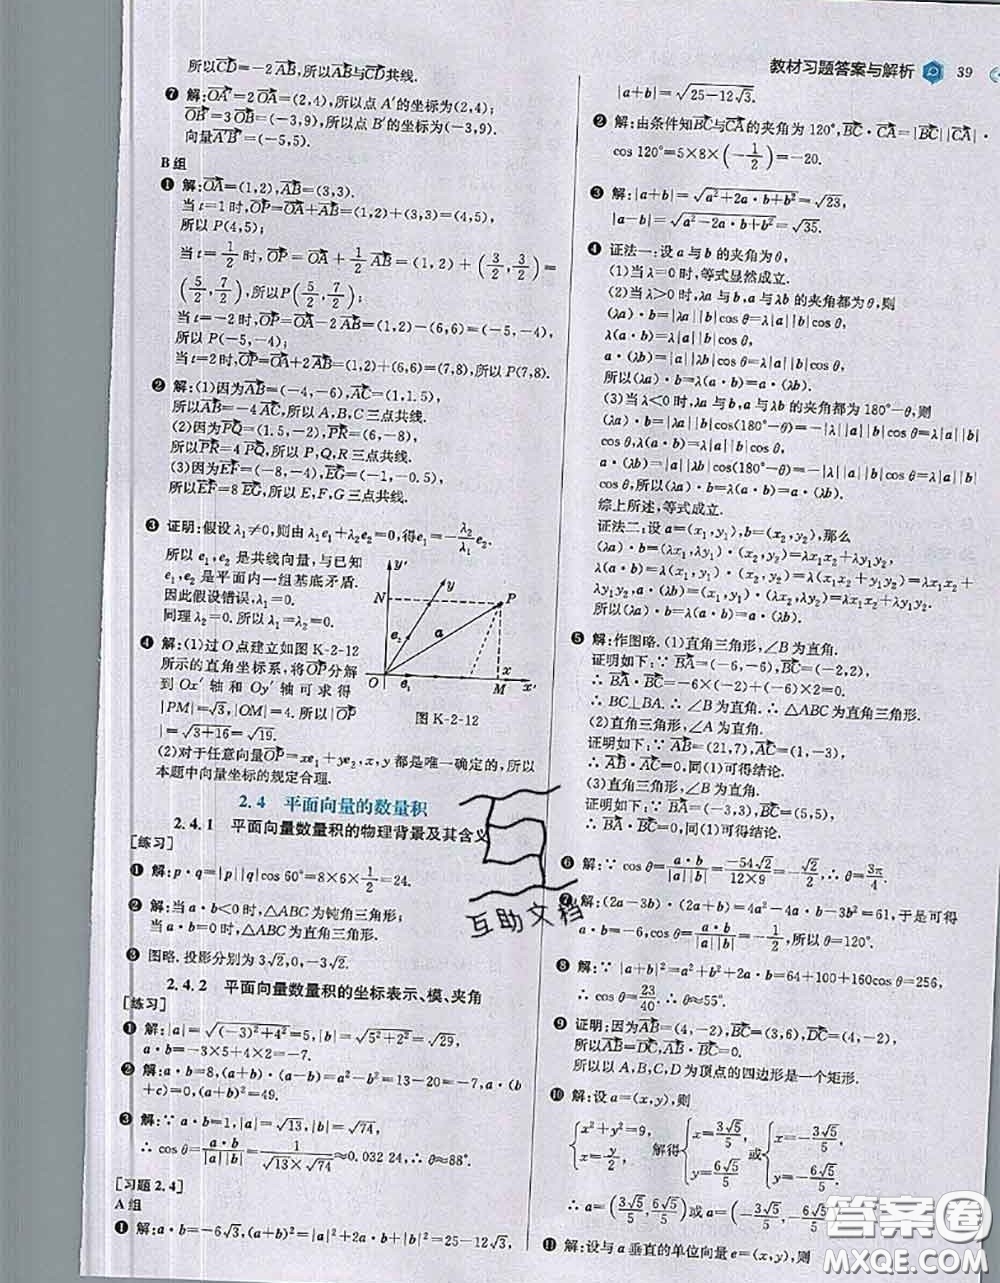 教材习题答案与解析 39
所以CD=-2AB,所以AB与CD共线.
❼ 解:OA'=2OA=(2,4),所以点 A'的坐标为(2,4);
OB'=3OB=(-3,9),所以点 B'的坐标为(-3,9).
向量A'B'=(-5,5).
B组
❶ 解:OA=(1,2),AB=(3,3).
当 t=1 时,OP=OA+AB=(1,2)+(3,3)=(4,5),
所以 P(4,5);
当 t=1/2 时,OP=OA+1/2 AB=(1,2)+(3/2,3/2)=
(5/2,7/2),所以P(5/2,7/2);
当 t=-2 时,OP=OA-2AB=(1,2)-(6,6)=(-5,-4),
所以 P(-5,-4);
当 t=2 时,OP=OA+2AB=(1,2)+(6,6)=(7,8),所以P(7,8).
❷ 解:(1)因为AB=(-4,-6),AC=(1,1.5),
所以AB=-4AC,所以 A,B,C 三点共线.
(2)因为PQ=(1.5,-2),PR=(6,-8),
所以PR=4PQ,所以 P,Q,R 三点共线.
(3)因为EF=(-8,-4),EG=(-1,-0.5),
所以EF=8EG,所以 E,F,G 三点共线.
❸ 证明:假设 λ₁≠0,则由 λ₁e₁+λ₂e₂=0,得e₁=-λ₂/λ₁ e₂.
所以 e₁,e₂ 是共线向量,与已知
e₁,e₂ 是平面内一组基底矛盾.
因此假设错误,λ₁=0.
同理 λ₂=0.所以 λ₁=λ₂=0.
❹ 解:(1)过 O 点建立如图 K-2-12
所示的直角坐标系,将OP分解
到 Ox' 轴和 Oy' 轴可求得
|PM|=√3,|OM|=4.所以|OP|
=√(3+16)=√19.
y'
y
N
P
e₂
a
O
e₁
M
x
x'
图 K-2-12
(2)对于任意向量OP=xe₁+ye₂,x,y 都是唯一确定的,所以
本题中向量坐标的规定合理.
2.4 平面向量的数量积
2.4.1 平面向量数量积的物理背景及其含义
[练习]
❶ 解:p·q=|p||q|cos 60°=8×6×1/2=24.
❷ 解:当 a·b<0时,△ABC为钝角三角形;
当 a·b=0时,△ABC为直角三角形.
❸ 图略.投影分别为 3√2,0,-3√2.
2.4.2 平面向量数量积的坐标表示、模、夹角
[练习]
❶ 解:|a|=√((-3)²+4²)=5,|b|=√(5²+2²)=√29,
a·b=-3×5+4×2=-7.
❷ 解:a·b=8,(a+b)·(a-b)=a²-b²=13-20=-7,a·(b
+c)=0,(a+b)²=49.
❸ 解:∵a·b=1,|a|=√13,|b|=√74,
∴cos θ=a·b/|a||b|=1/(√13×√74)≈0.032 24,∴θ≈88°.
[习题 2.4]
A组
❶ 解:a·b=-6√3,(a+b)²=|a|²+2a·b+|b|²=25-12√3,
|a+b|=√(25-12√3).
❷ 解:由条件知BC与CA的夹角为 120°,BC·CA=|BC||CA|·
cos 120°=5×8×(-1/2)=-20.
❸ 解:|a+b|=√(a²+2a·b+b²)=√23,
|a-b|=√(a²-2a·b+b²)=√35.
❹ 证法一:设 a 与 b 的夹角为 θ,
(1)当 λ=0 时,等式显然成立.
(2)当 λ>0 时,λa 与 b,a 与 λb 的夹角都为 θ,则
(λa)·b=|λa||b|cos θ=λ|a||b|cos θ,
λ(a·b)=λ|a||b|cos θ,
a·(λb)=|a||λb|cos θ=λ|a||b|cos θ,
所以(λa)·b=λ(a·b)=a·(λb).
(3)当 λ<0 时,λa 与 b,a 与 λb 的夹角都为 180°-θ,则
(λa)·b=|λa||b|cos(180°-θ)=-|λ||a||b|cos θ=λ|a||b|
cos θ,λ(a·b)=λ|a||b|cos θ,
a·(λb)=|a||λb|cos(180°-θ)=-|λ||a||b|cos θ=λ|a||b|
cos θ,所以(λa)·b=λ(a·b)=a·(λb).
综上所述,等式成立.
证法二:设 a=(x₁,y₁),b=(x₂,y₂),那么
(λa)·b=(λx₁,λy₁)·(x₂,y₂)=λx₁x₂+λy₁y₂,
λ(a·b)=λ(x₁,y₁)·(x₂,y₂)=λ(x₁x₂+y₁y₂)=λx₁x₂+
λy₁y₂,a·(λb)=(x₁,y₁)·(λx₂,λy₂)=λx₁x₂+λy₁y₂.
所以(λa)·b=λ(a·b)=a·(λb).
❺ 解:作图略.(1)直角三角形,∠B为直角.
证明如下:∵BA=(-6,-6),BC=(-2,2),
∴BA·BC=-6×(-2)+(-6)×2=0.
∴BC⊥BA.∴∠B为直角.∴△ABC为直角三角形.
(2)直角三角形,∠A为直角.
证明如下:∵AB=(21,7),AC=(1,-3),
∴AB·AC=0,同(1)可得结论.
(3)直角三角形,∠B为直角.
证明如下:∵BA=(-3,3),BC=(5,5),
∴BA·BC=0,同(1)可得结论.
❻ 解:∵cos θ=a·b/|a||b|=-54√2/(12×9)=-√2/2,∴θ=3π/4.
❼ 解:(2a-3b)·(2a+b)=4a²-4a·b-3b²=61,于是可得
a·b=-6,cos θ=a·b/|a||b|=-1/2,所以 θ=120°.
❽ 解:∵(a+b)·(a+b)=a²+2a·b+b²=64+100+160cos θ=256,
∴cos θ=23/40.∴θ≈55°.
❾ 证明:因为AB=(4,-2),BC=(3,6),DC=(4,-2),
所以AB=DC,AB·BC=0.
所以以 A,B,C,D 为顶点的四边形是一个矩形.
❿ 解:设 a=(x,y),则
{x²+y²=9, x=y/2, 解得{x=3√5/5, y=6√5/5 或{x=-3√5/5, y=-6√5/5.
∴a=(3√5/5,6√5/5)或a=(-3√5/5,-6√5/5).
⓫ 解:设与 a 垂直的单位向量 e=(x,y),则
互助文档
答案圈
MXQE.COM